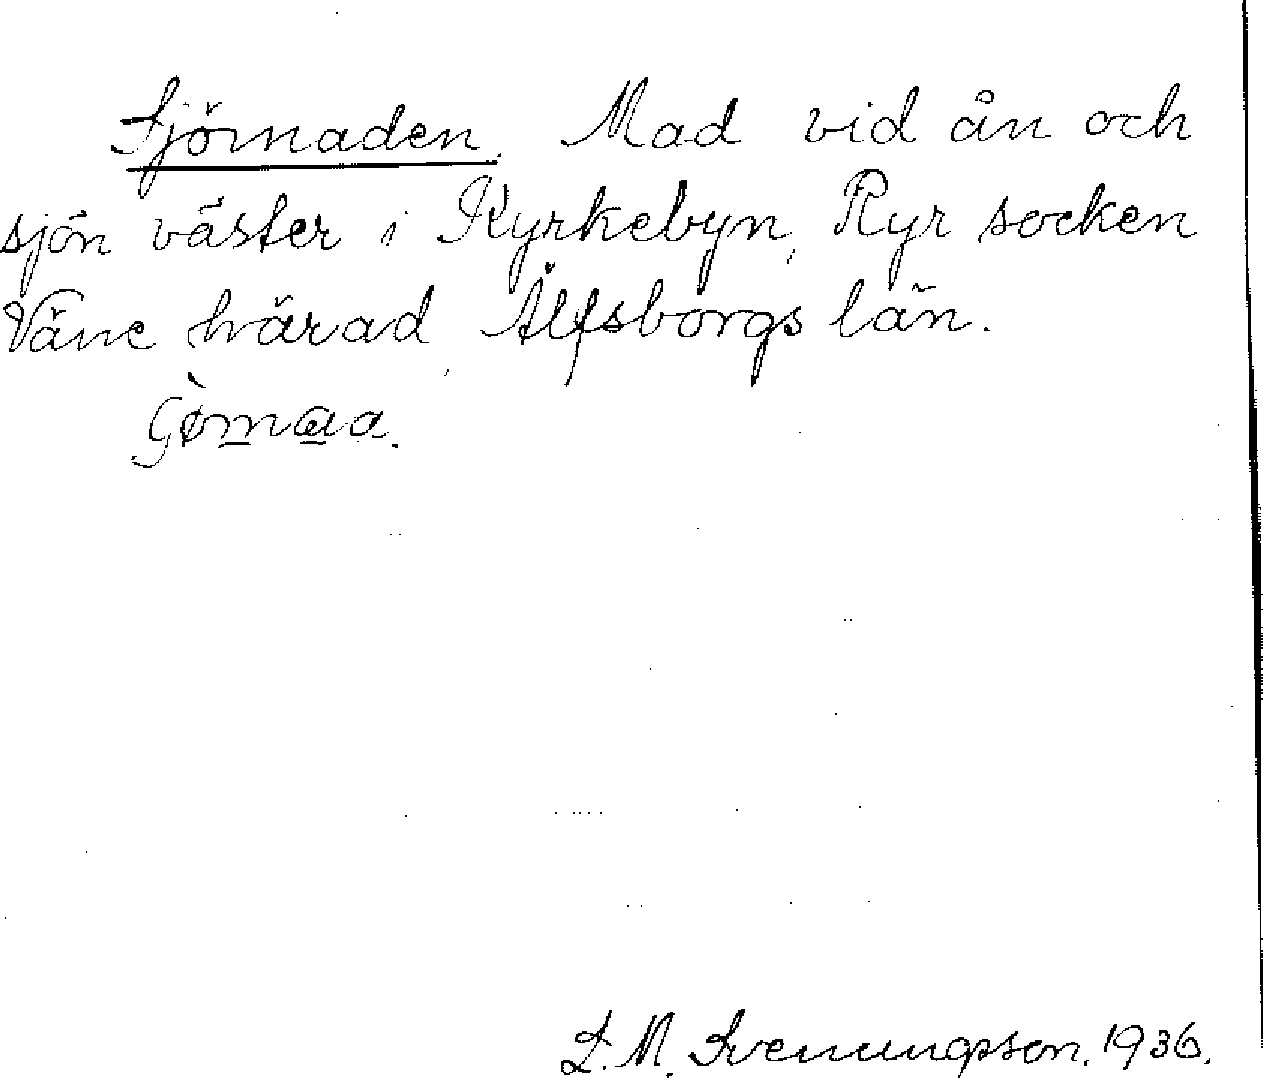 Sjömaden. Mad vid ån och
sjön väster i Kyrkebyn, Ryr socken
Väne härad, Älfsborgs län.
L. M. Svenungsson. 1936.